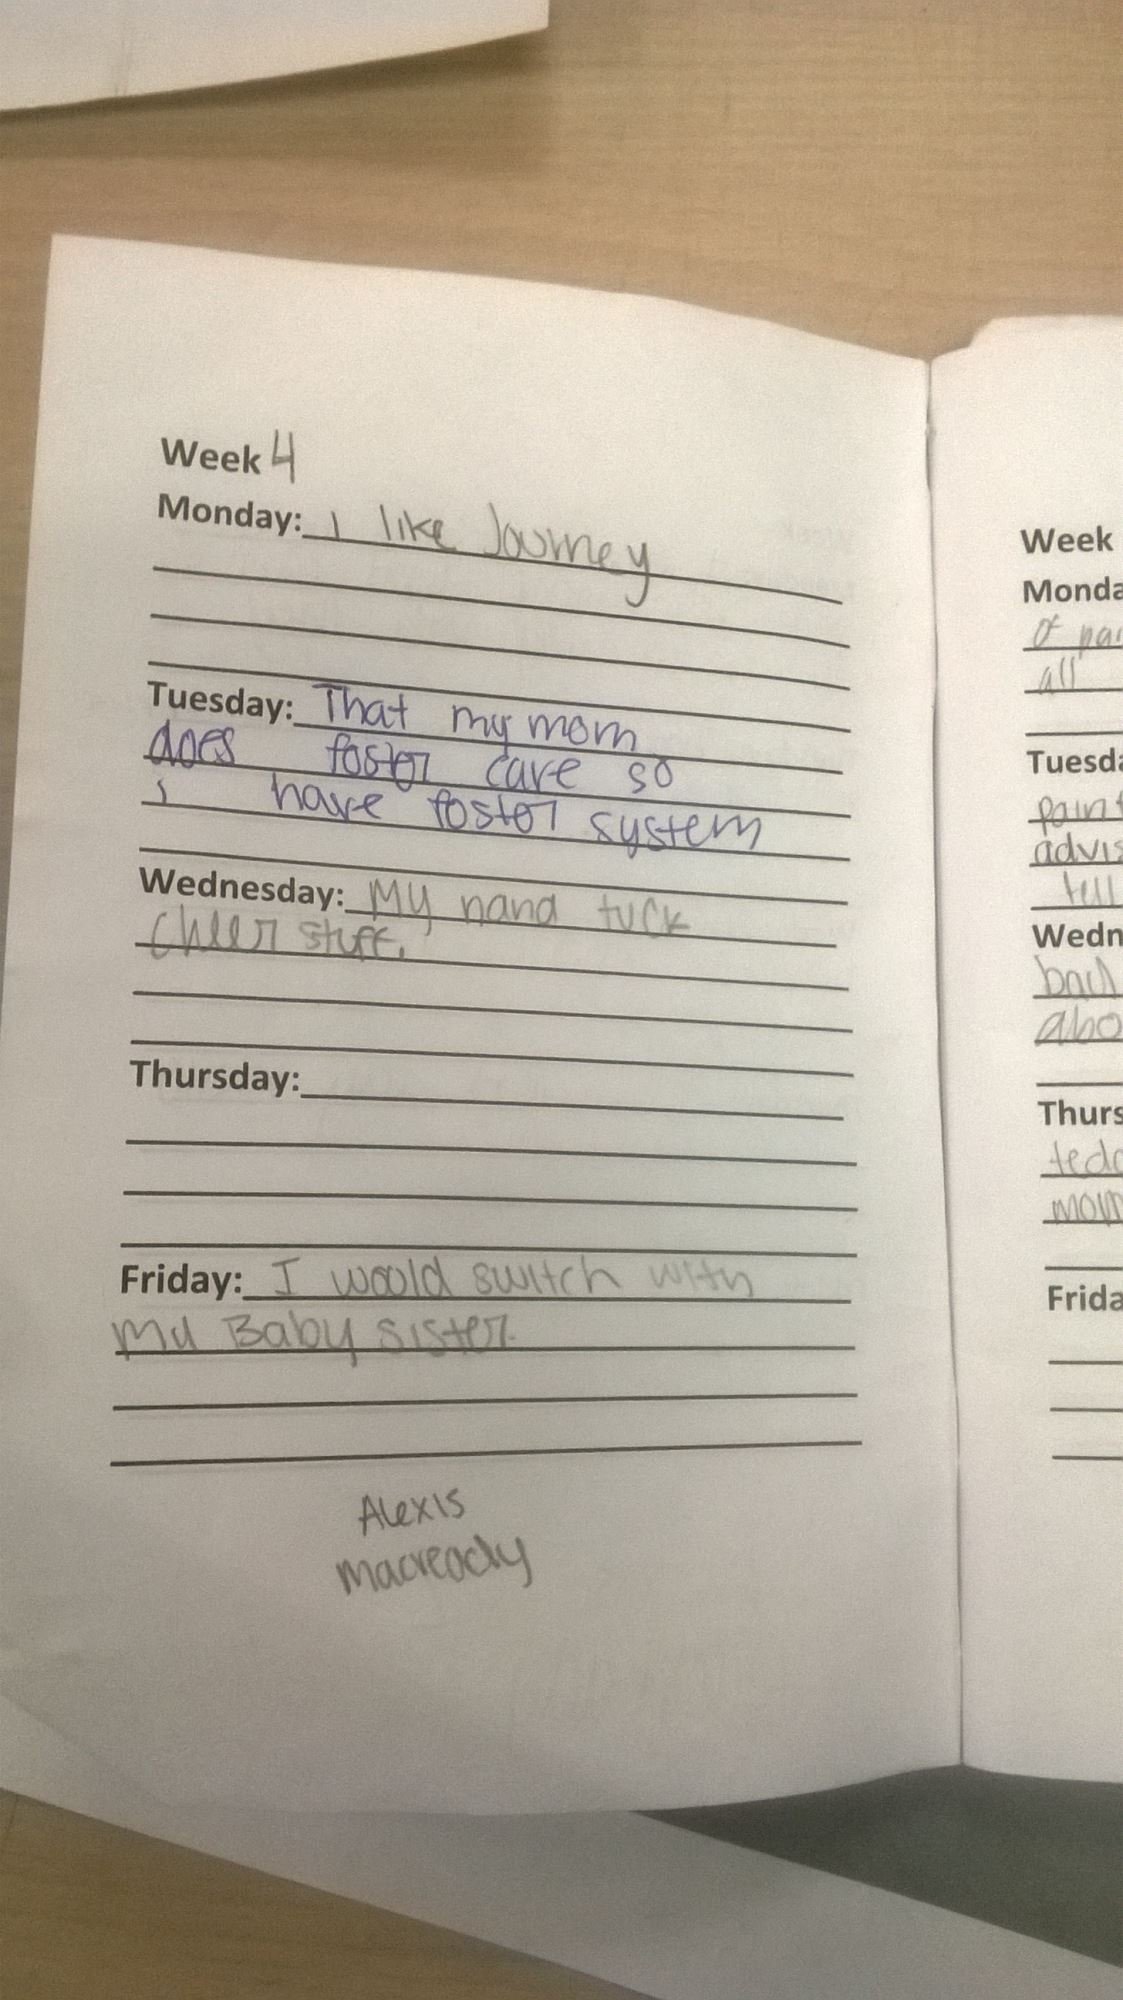 Week 4
Monday: i like Journey
Tuesday: That my mom
does foster care so
i have foster system
Wednesday: My nana tuck
cheer stuff.
Thursday:
Friday: I would switch with
my Baby sister.
Alexis
macready
Week
Monda
of pai
all
Tuesda
paint
advis
tell
Wedn
bad
abo
Thurs
mom
Frida